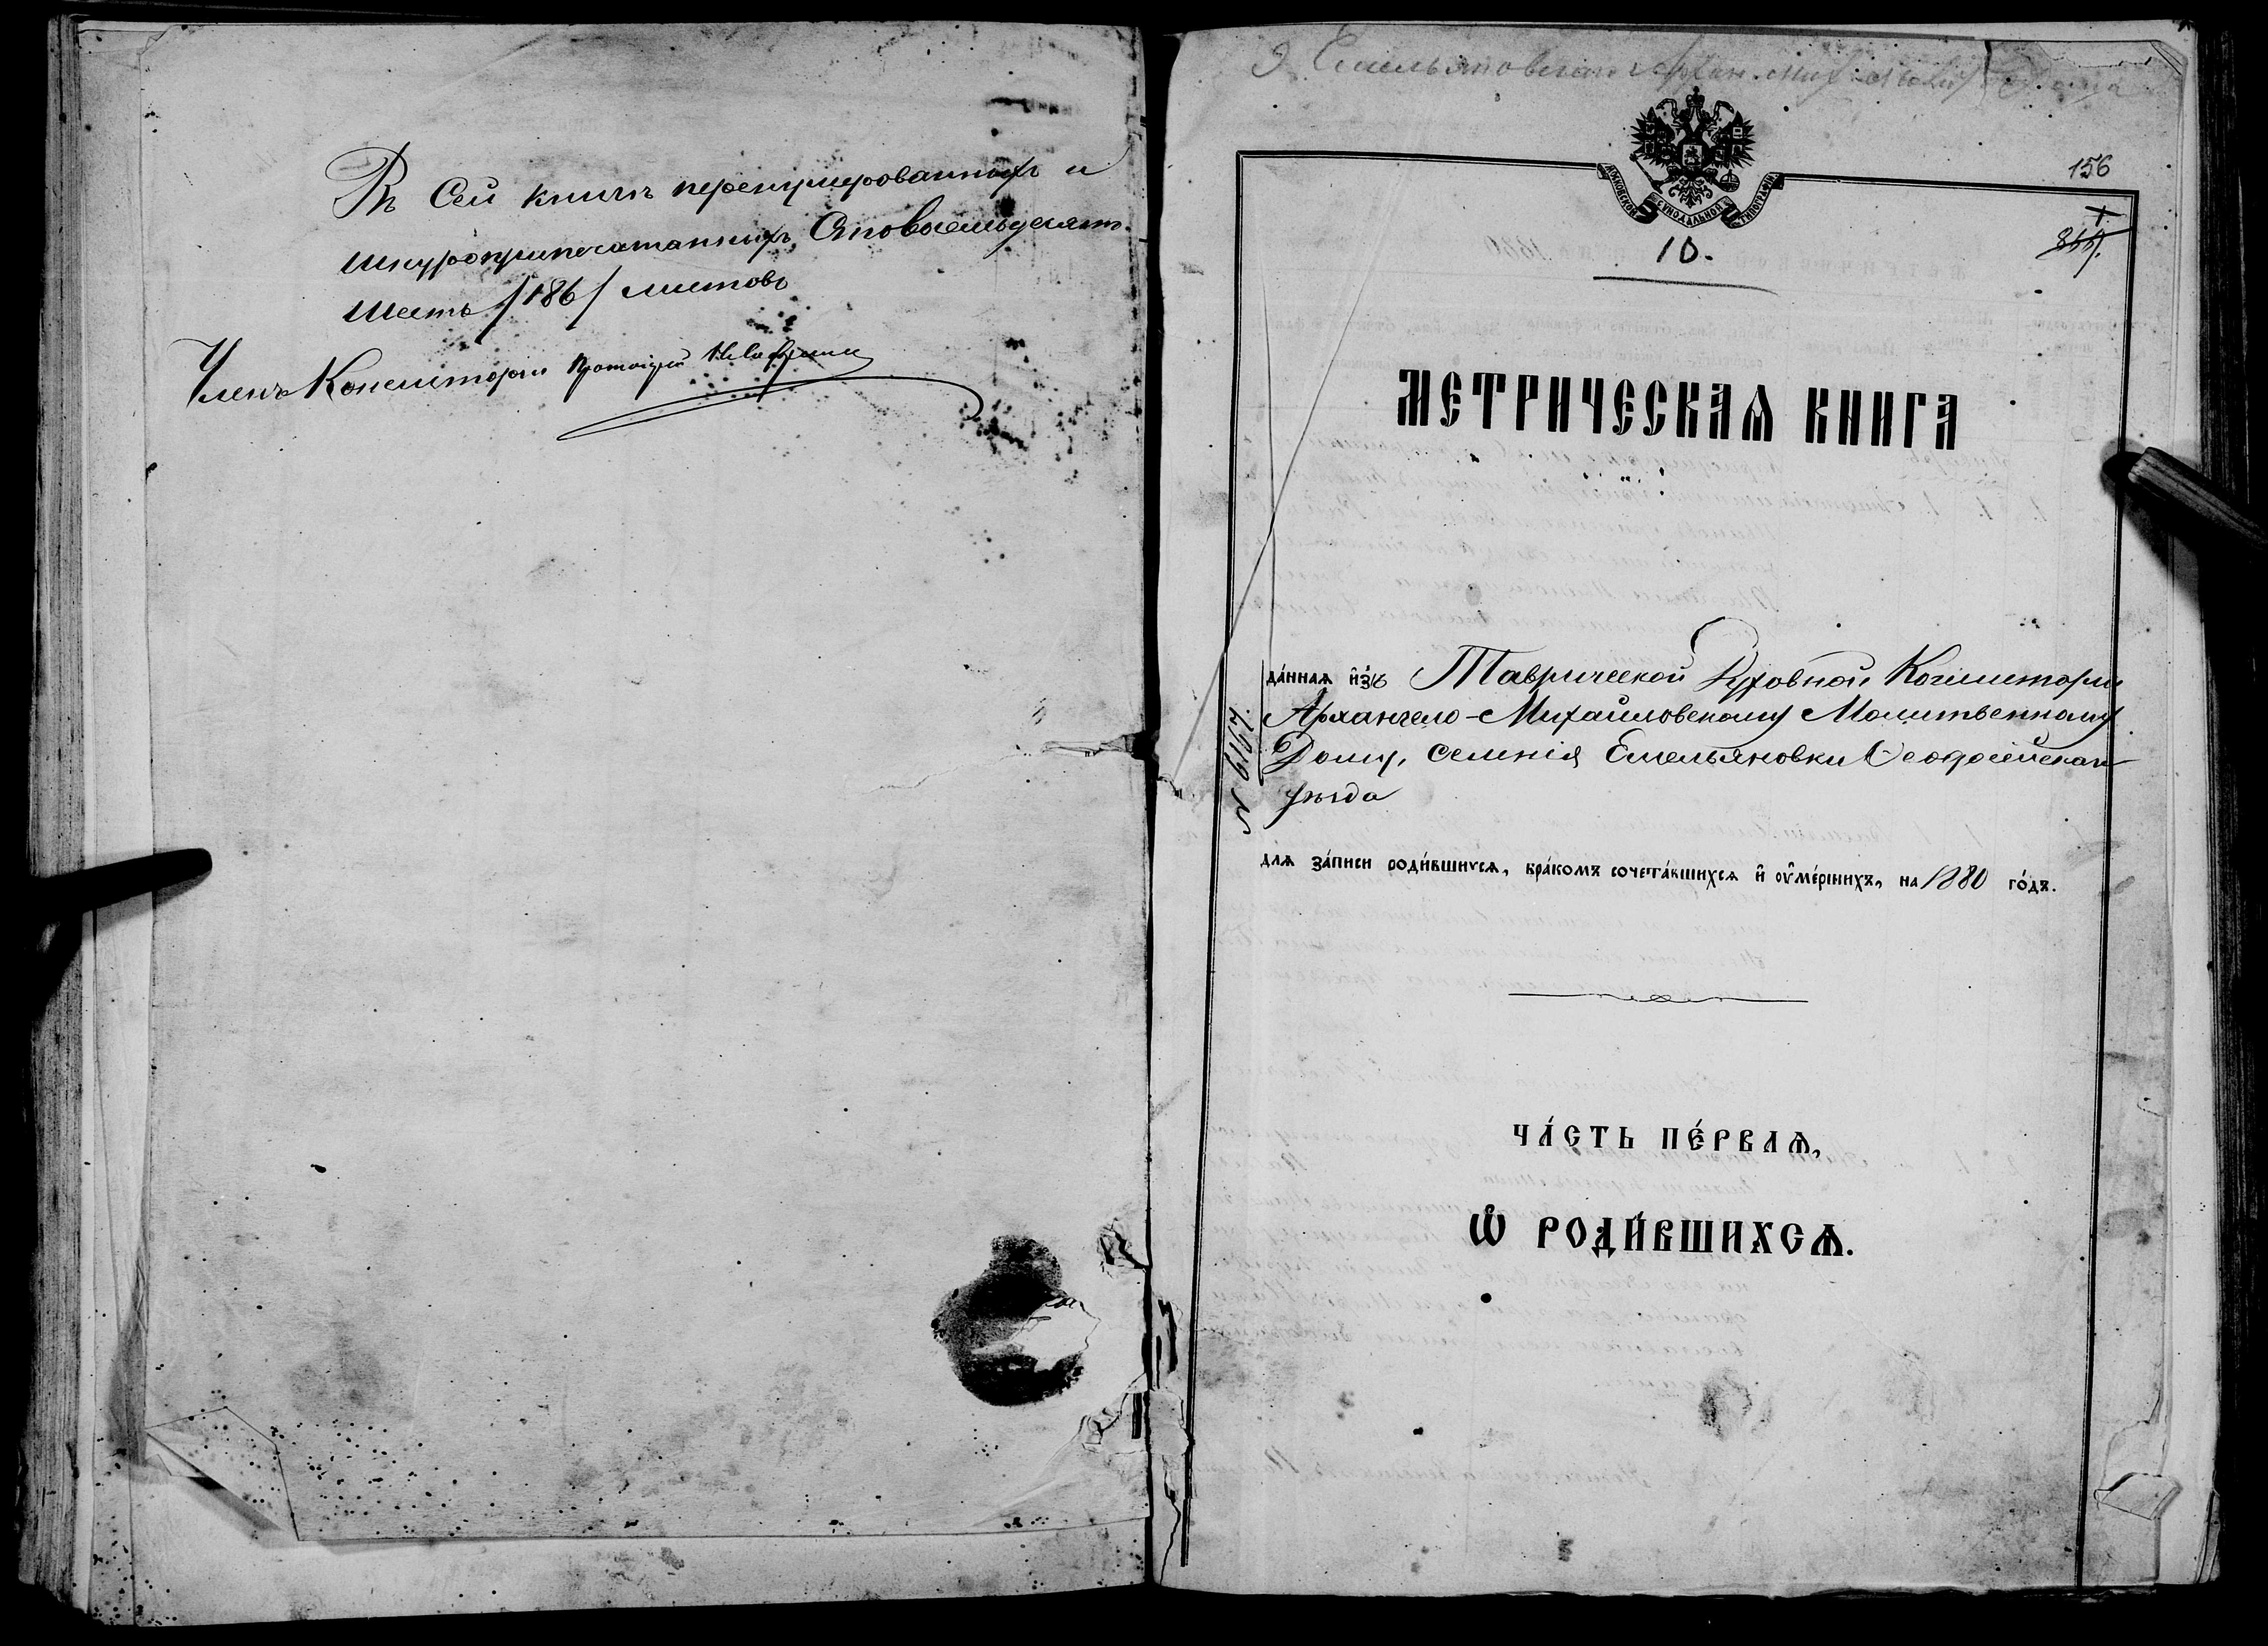 Въ сей книгѣ перенумерованныхъ и
шнуроприпечатанныхъ, Стовосемьдесятъ
шесть /186/ листовъ
Членъ Консисторіи Протоіерей
Емельяновская Арх. Мих. Дома
156
МОСКОВСКОЙ СѴНОДАЛЬНОЙ ТИПОГРАФІИ
10.
МЕТРИЧЕСКАѦ КНИГА
да́ннаѧ и҆зъ Таврической Духовной Консисторіи
Архангело-Михайловскому Молитвенному
Дому, селенія Емельяновки Ѳеодосійскаго
уѣзда
№ 6167.
длѧ за́писи роди́вшихсѧ, бра́комъ сочета́вшихсѧ и҆ ᲂу҆ме́ршихъ, на 1880 го́дъ.
ЧА́СТЬ ПЕ́РВАѦ,
Ѽ РОДИ́ВШИХСѦ.